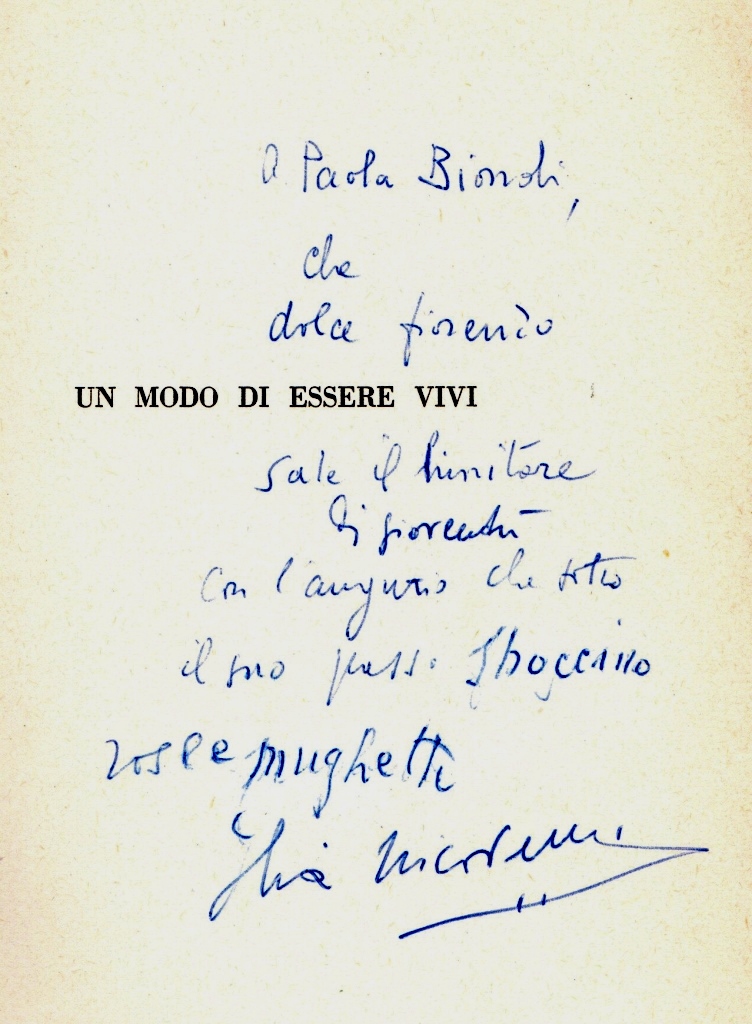 A Paola Biondi,
che
dolce fiorendo
UN MODO DI ESSERE VIVI
sale il limitare
di gioventù
con l'augurio che sotto
il suo passo sboccino
rose e mughetti